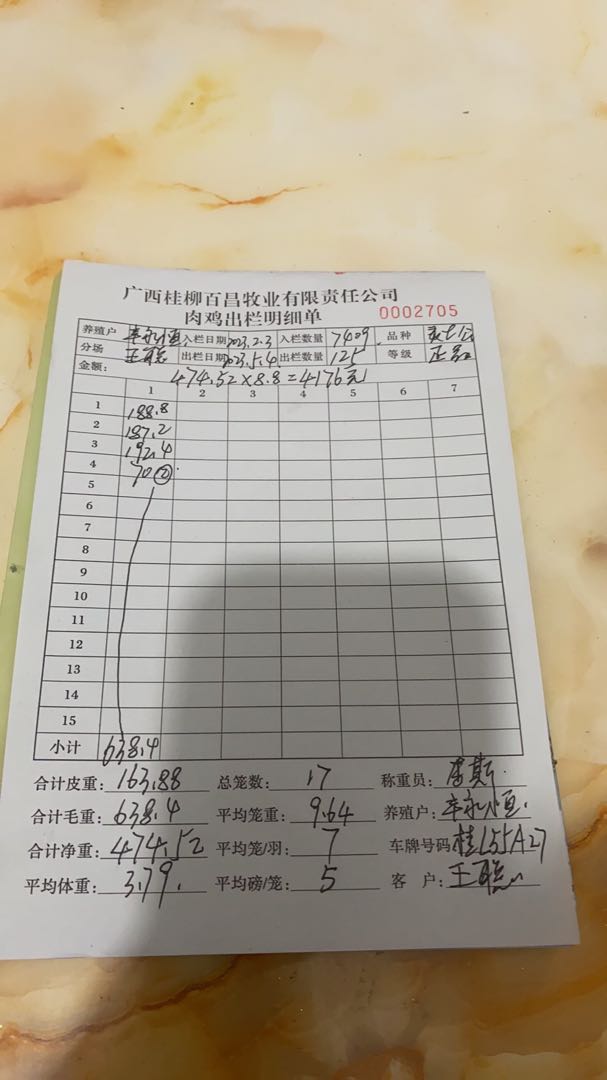 广西桂柳百昌牧业有限责任公司
肉鸡出栏明细单 0002705
养殖户 入栏日期 2023.2.3 入栏数量 7409 品种
分场 王聪 出栏日期 2023.5.4 出栏数量 125 等级 正品
金额: 474.52×8.8=4176元
1 2 3 4 5 6 7
1 188.8
2 187.2
3 192.4
4 70②
5
6
7
8
9
10
11
12
13
14
15
小计 638.4
合计皮重: 163.88 总笼数: 17 称重员:
合计毛重: 638.4 平均笼重: 9.64 养殖户:
合计净重: 474.52 平均笼/羽: 7 车牌号码 桂L55A27
平均体重: 3.79 平均磅/笼: 5 客户: 王聪